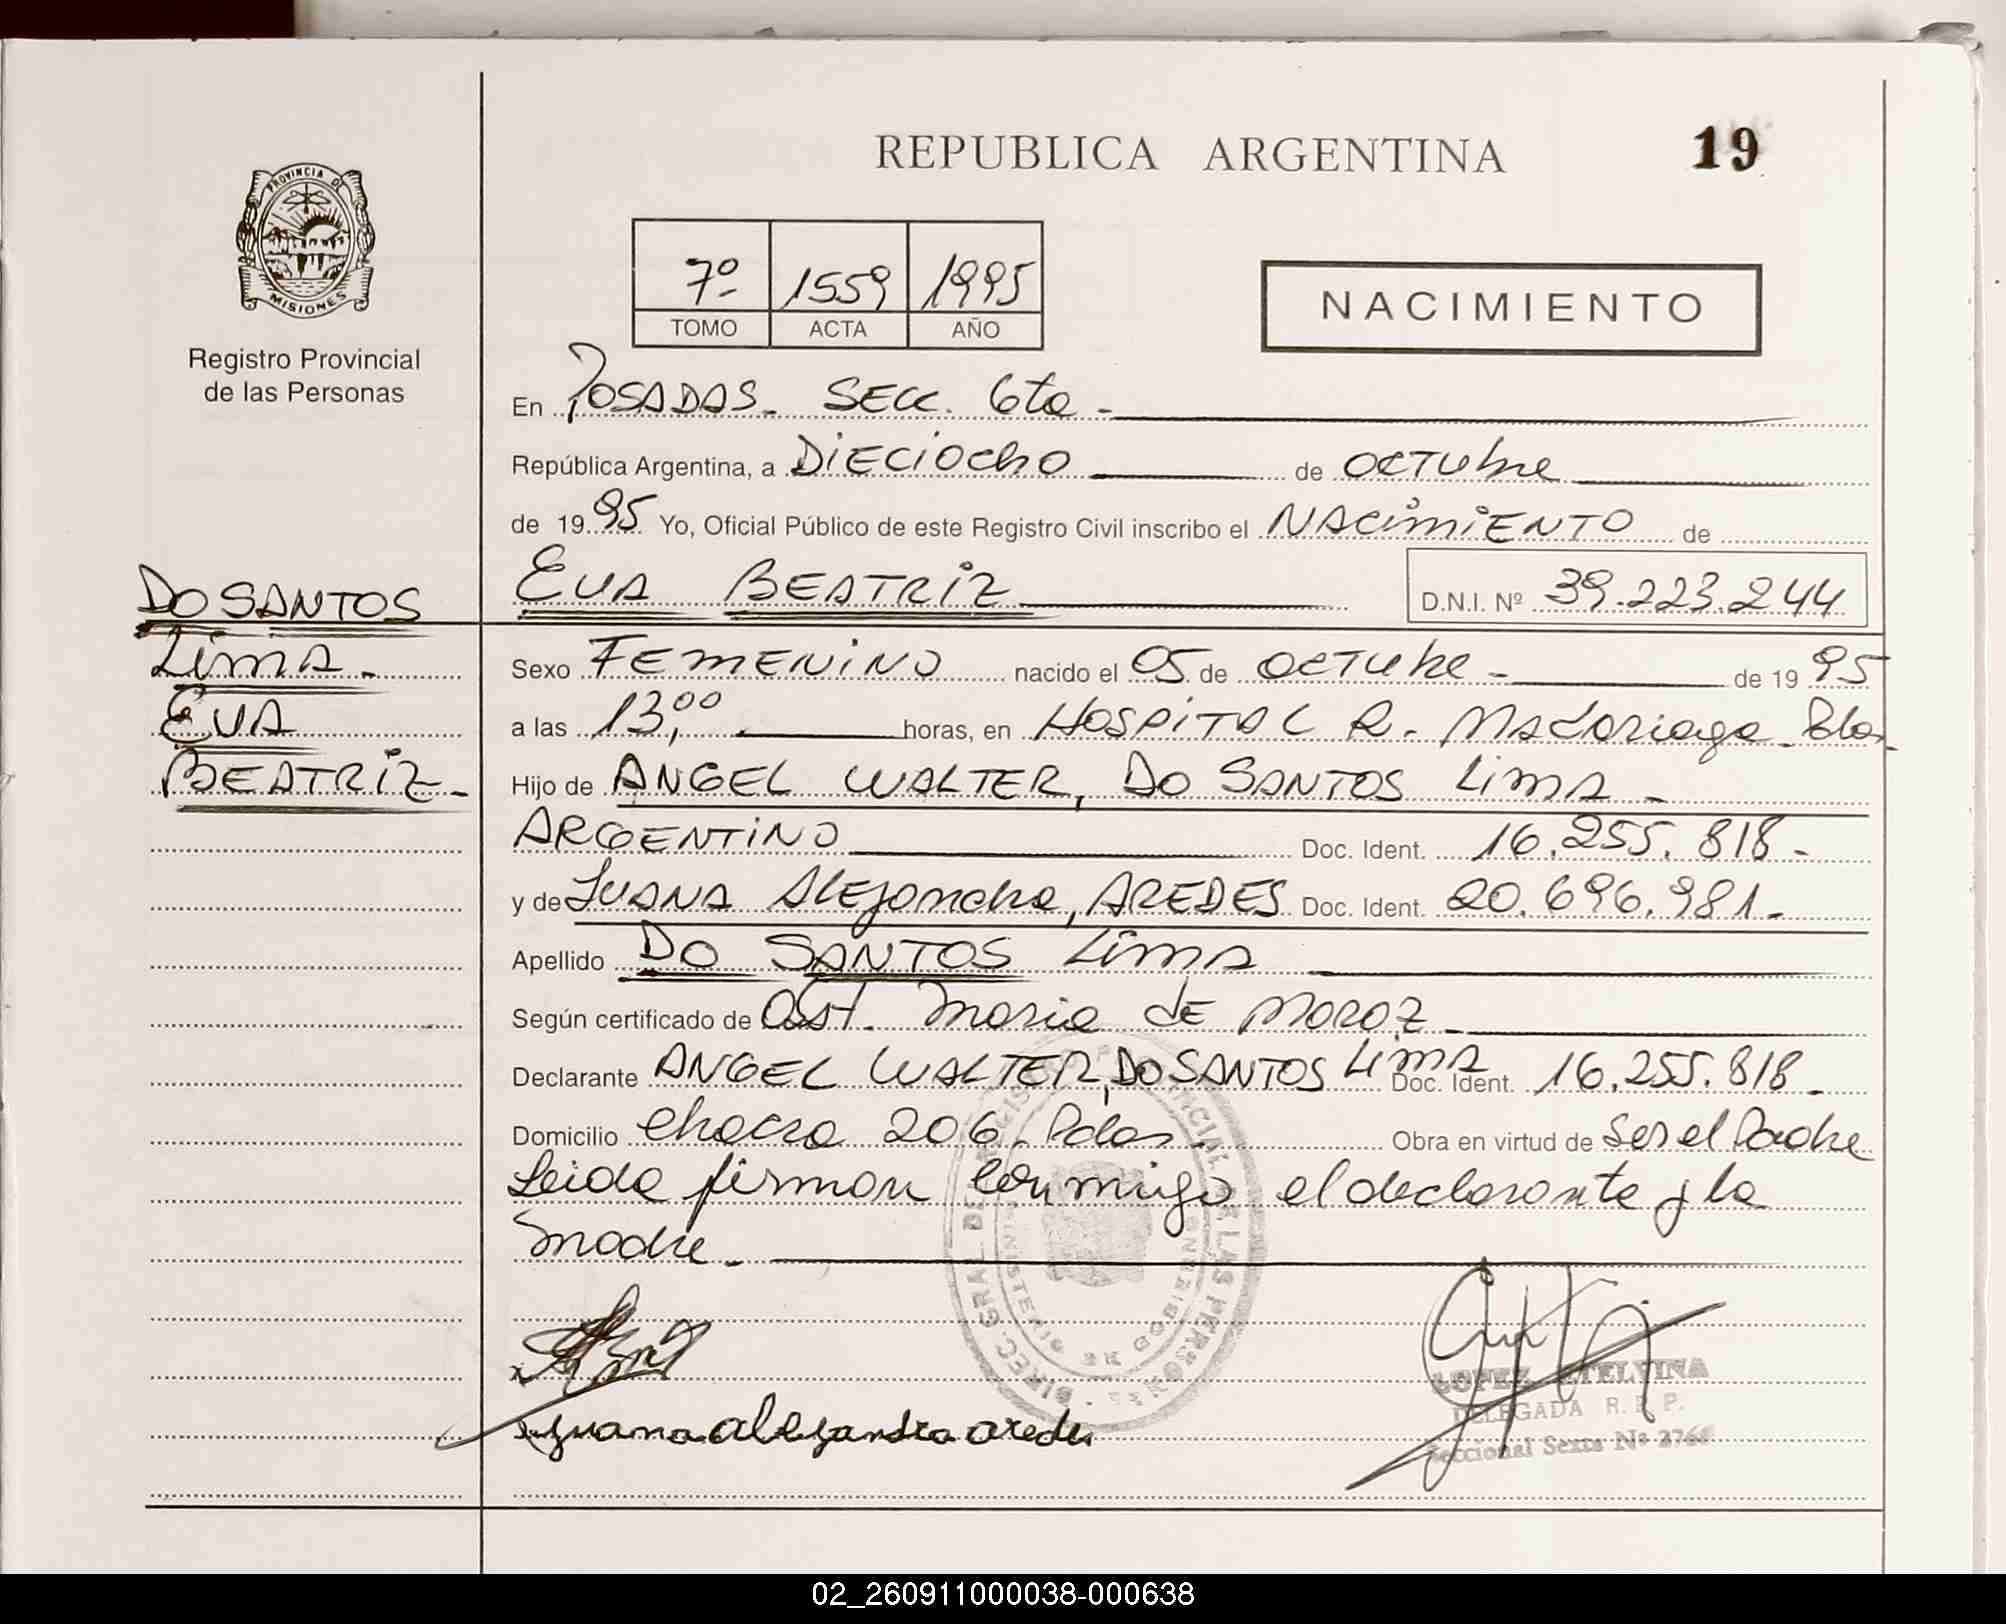 REPUBLICA ARGENTINA
19
PROVINCIA DE
MISIONES
Registro Provincial
de las Personas
7º 1559 1995
TOMO ACTA AÑO
NACIMIENTO
En POSADAS. SECC. 6ta -
República Argentina, a DIECIOCHO de OCTUBRE
de 19 95 Yo, Oficial Público de este Registro Civil inscribo el NACIMIENTO de
EVA BEATRIZ D.N.I. Nº 39.223.244
DO SANTOS
LIMA -
EVA
BEATRIZ -
Sexo FEMENINO nacido el 05 de OCTUBRE - de 19 95
a las 13,00 horas, en HOSPITAL R. MADARIAGA - Pdas -
Hijo de ANGEL WALTER, DO SANTOS LIMA -
ARGENTINO Doc. Ident. 16.255.818 -
y de JUANA Alejandra, AREDES Doc. Ident. 20.696.981 -
Apellido DO SANTOS LIMA
Según certificado de Obst. Maria de MOROZ -
Declarante ANGEL WALTER, DO SANTOS LIMA Doc. Ident. 16.255.818 -
Domicilio Chacra 206. Pdas - Obra en virtud de Ser el Padre
Leida firman conmigo el declarante y la
madre -
DIREC. GRAL. DE REGISTRO PROVINCIAL DE LAS PERSONAS
MINISTERIO DE GOBIERNO
Juana alejandra aredes
LOPEZ ETELVINA
DELEGADA R. P. P.
Seccional Sexta Nº
02_260911000038-000638